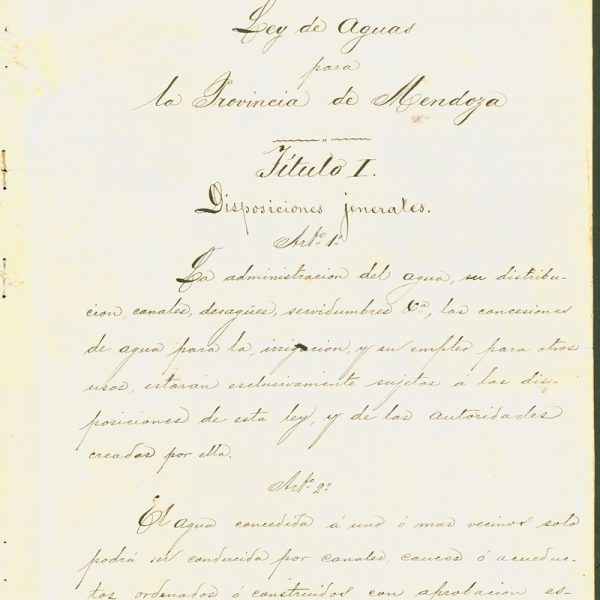 Ley de Aguas
para
la Provincia de Mendoza
Título I.
Disposiciones jenerales.
Arto. 1o.
La administracion del agua, su distribu-
cion, canales, desagües, servidumbres &a., las concesiones
de agua para la irrigacion, y su empleo para otros
usos, estarán esclusivamente sujetas á las dis-
posiciones de esta ley, y de las autoridades
creadas por ella.
Arto. 2o.
El agua concedida á uno ó mas vecinos solo
podrá ser conducida por canales, cauces ó acueduc-
tos ordenados ó construidos con aprobacion es-